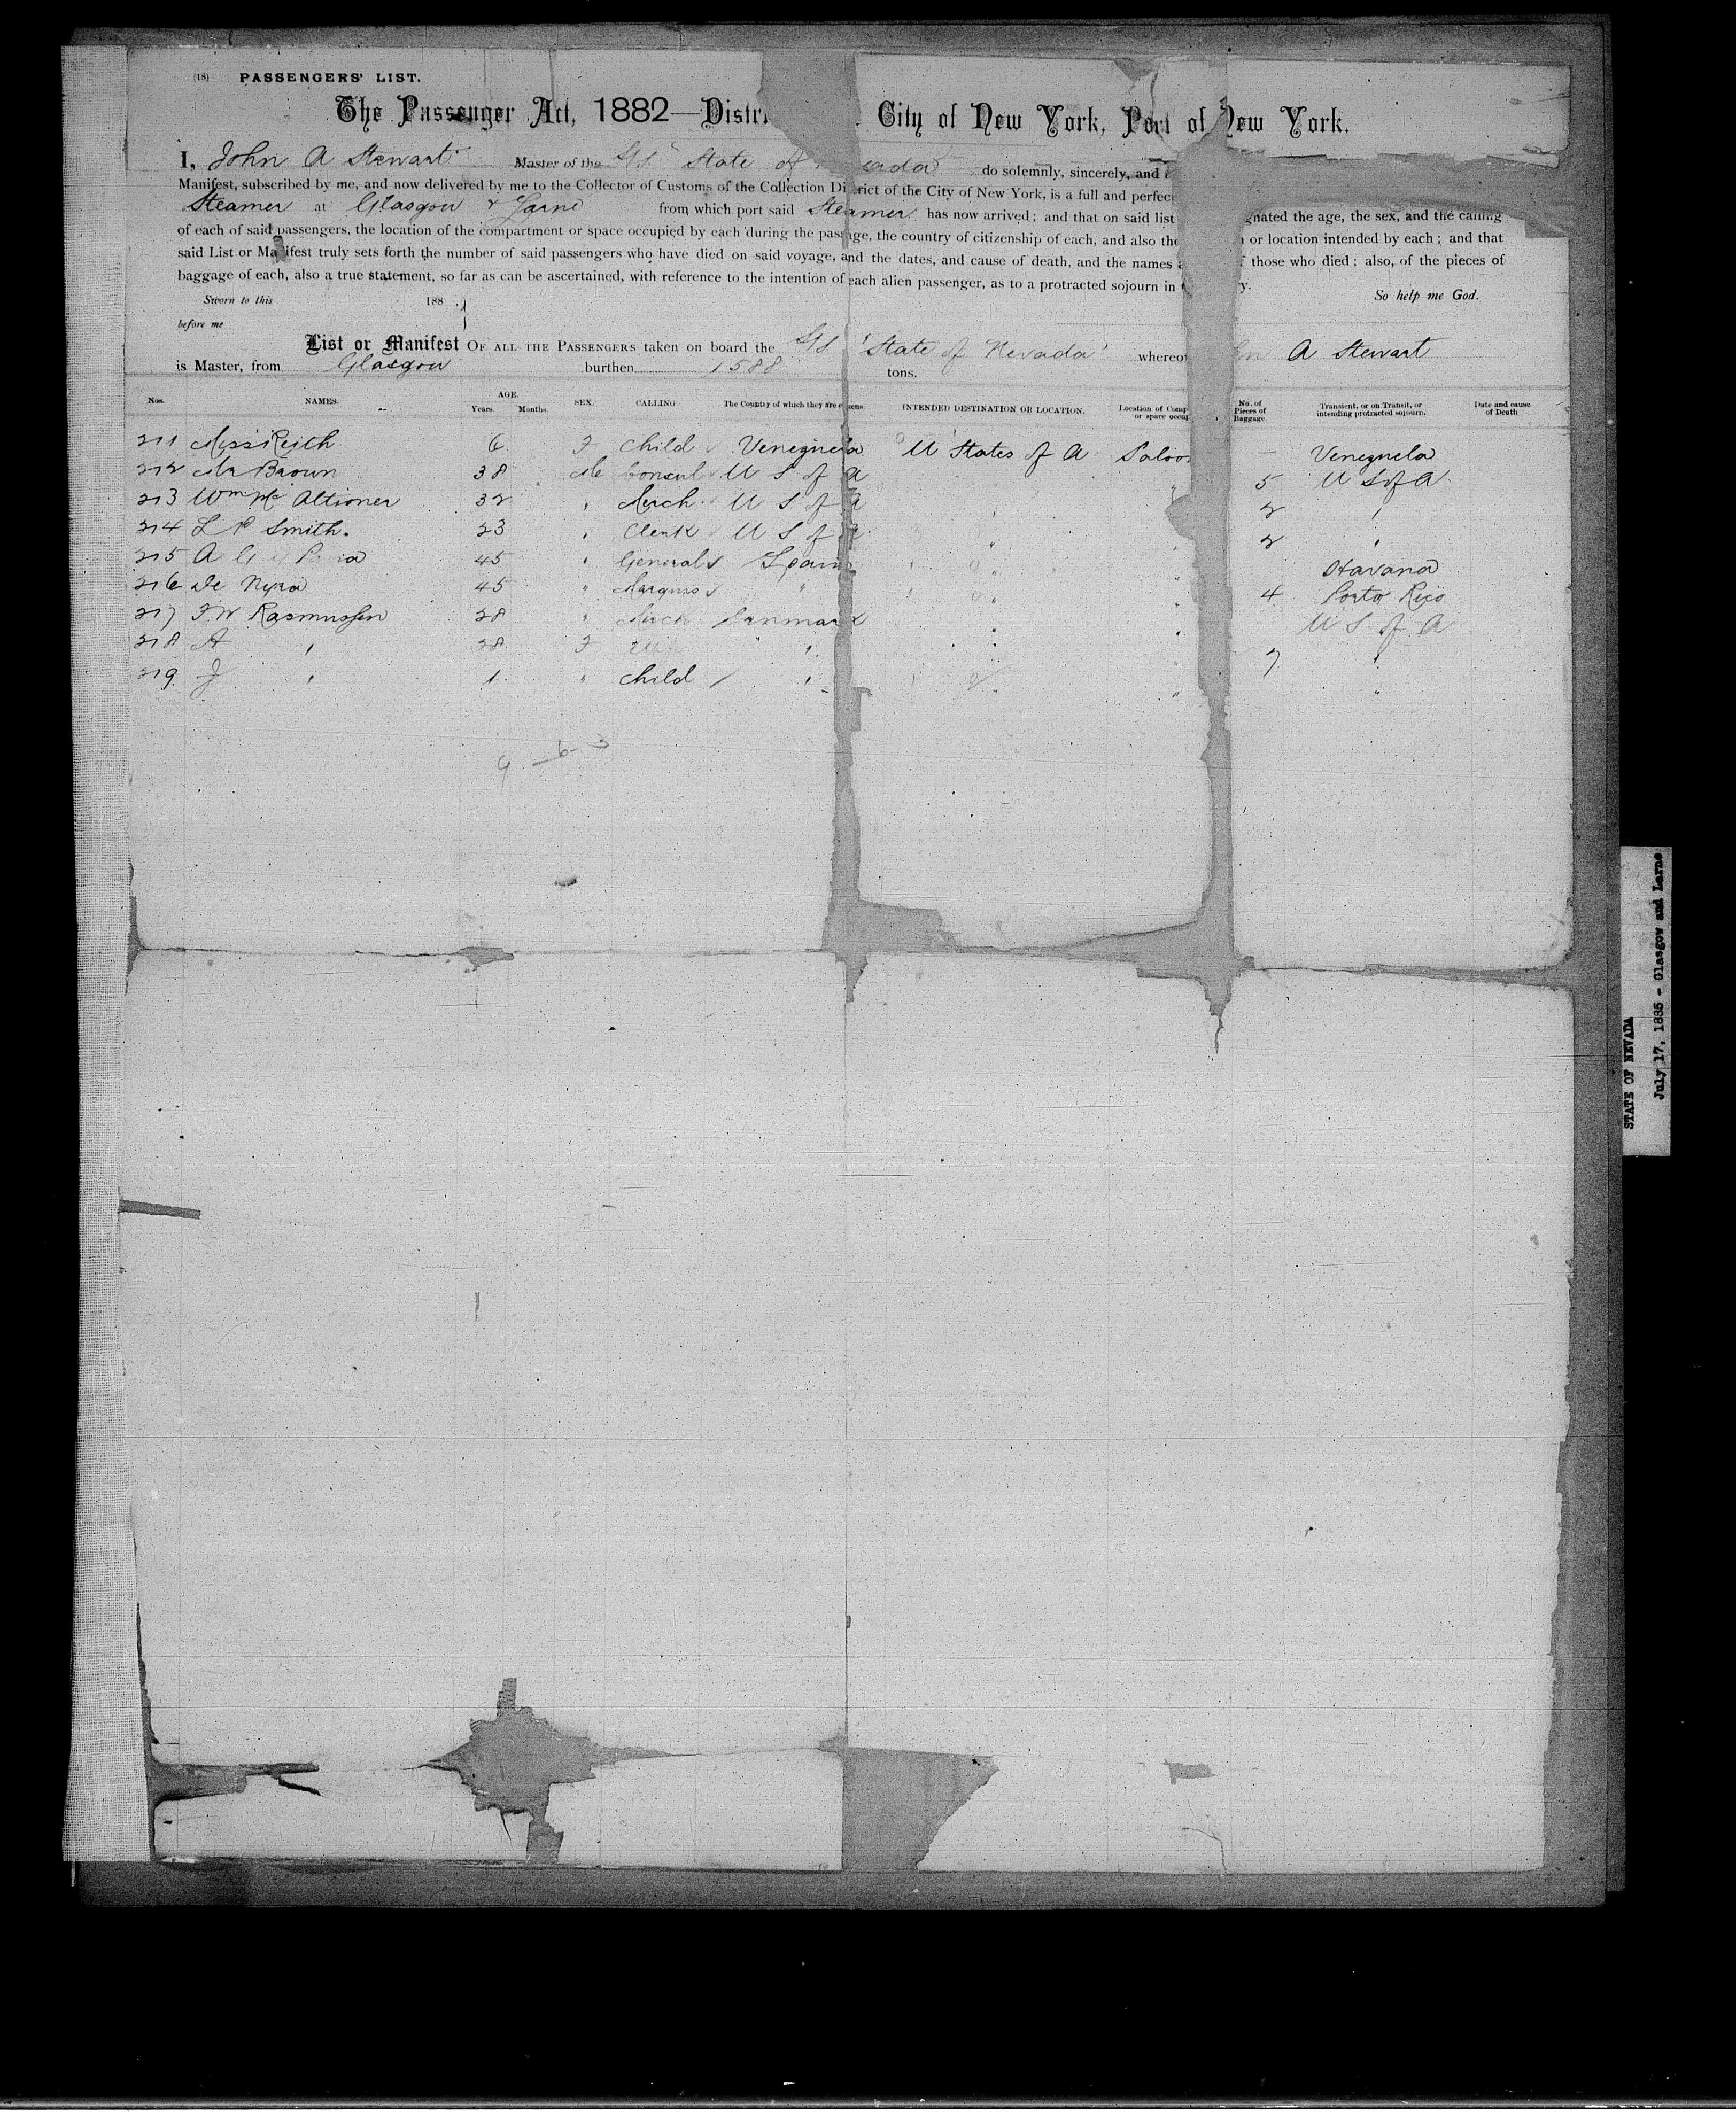 (18) PASSENGERS' LIST.
The Passenger Act, 1882—Distri City of New York, Port of New York.
I, John A Stewart Master of the S/S "State of ada" do solemnly, sincerely, and
Manifest, subscribed by me, and now delivered by me to the Collector of Customs of the Collection District of the City of New York, is a full and perfec
Steamer at Glasgow & Larne from which port said Steamer has now arrived; and that on said list gnated the age, the sex, and the calling
of each of said passengers, the location of the compartment or space occupied by each during the passage, the country of citizenship of each, and also the or location intended by each; and that
said List or Manifest truly sets forth the number of said passengers who have died on said voyage, and the dates, and cause of death, and the names those who died; also, of the pieces of
baggage of each, also a true statement, so far as can be ascertained, with reference to the intention of each alien passenger, as to a protracted sojourn in y.
Sworn to this 188 So help me God.
before me
List or Manifest OF ALL THE PASSENGERS taken on board the S/S 'State of Nevada' whereof A Stewart
is Master, from Glasgow burthen 1588 tons.
Nos. NAMES. AGE. Years. Months. SEX. CALLING. The Country of which they are citizens. INTENDED DESTINATION OR LOCATION. Location of Comp or space occup No. of Pieces of Baggage. Transient, or on Transit, or intending protracted sojourn. Date and cause of Death
271 Miss Keith 6 F Child Venezuela U States of A Saloo — Venezuela
272 Mr Brown 38 M Consul U S of A " 5 U S of A
273 Wm Mc 32 " Merch U S of A " " 2 "
274 L P Smith. 23 " Clerk U S of A " " 2 "
275 A G 45 " General Spain " " Havana
276 De 45 " Marquis " " " 4 Porto Rico
277 F. W Rasmussen 28 " Merch Denmark " " U S. of A
278 A " 28 F Wife " " " 7 "
279 J " 1 " Child " " " "
9 — 6 - 3
STATE OF NEVADA
July 17, 1885 - Glasgow and Larne